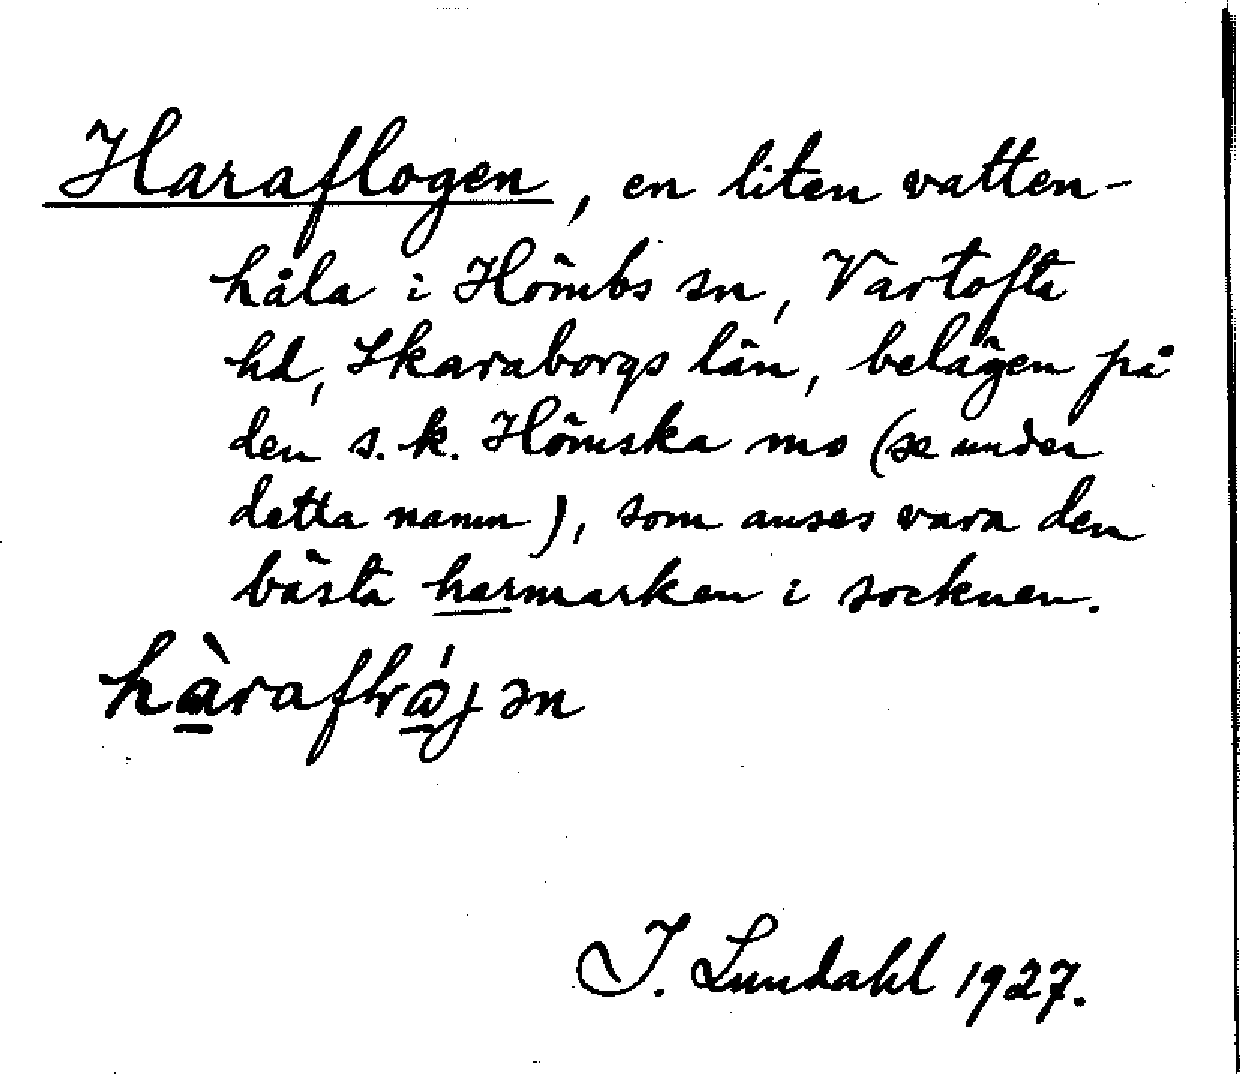 Haraflogen, en liten vatten-
håla i Hömbs sn, Vartofta
hd, Skaraborgs län, belägen på
den s.k. Hömska mo (se under
detta namn), som anses vara den
bästa harmarken i socknen.
hàraflråjən
I. Lundahl 1927.